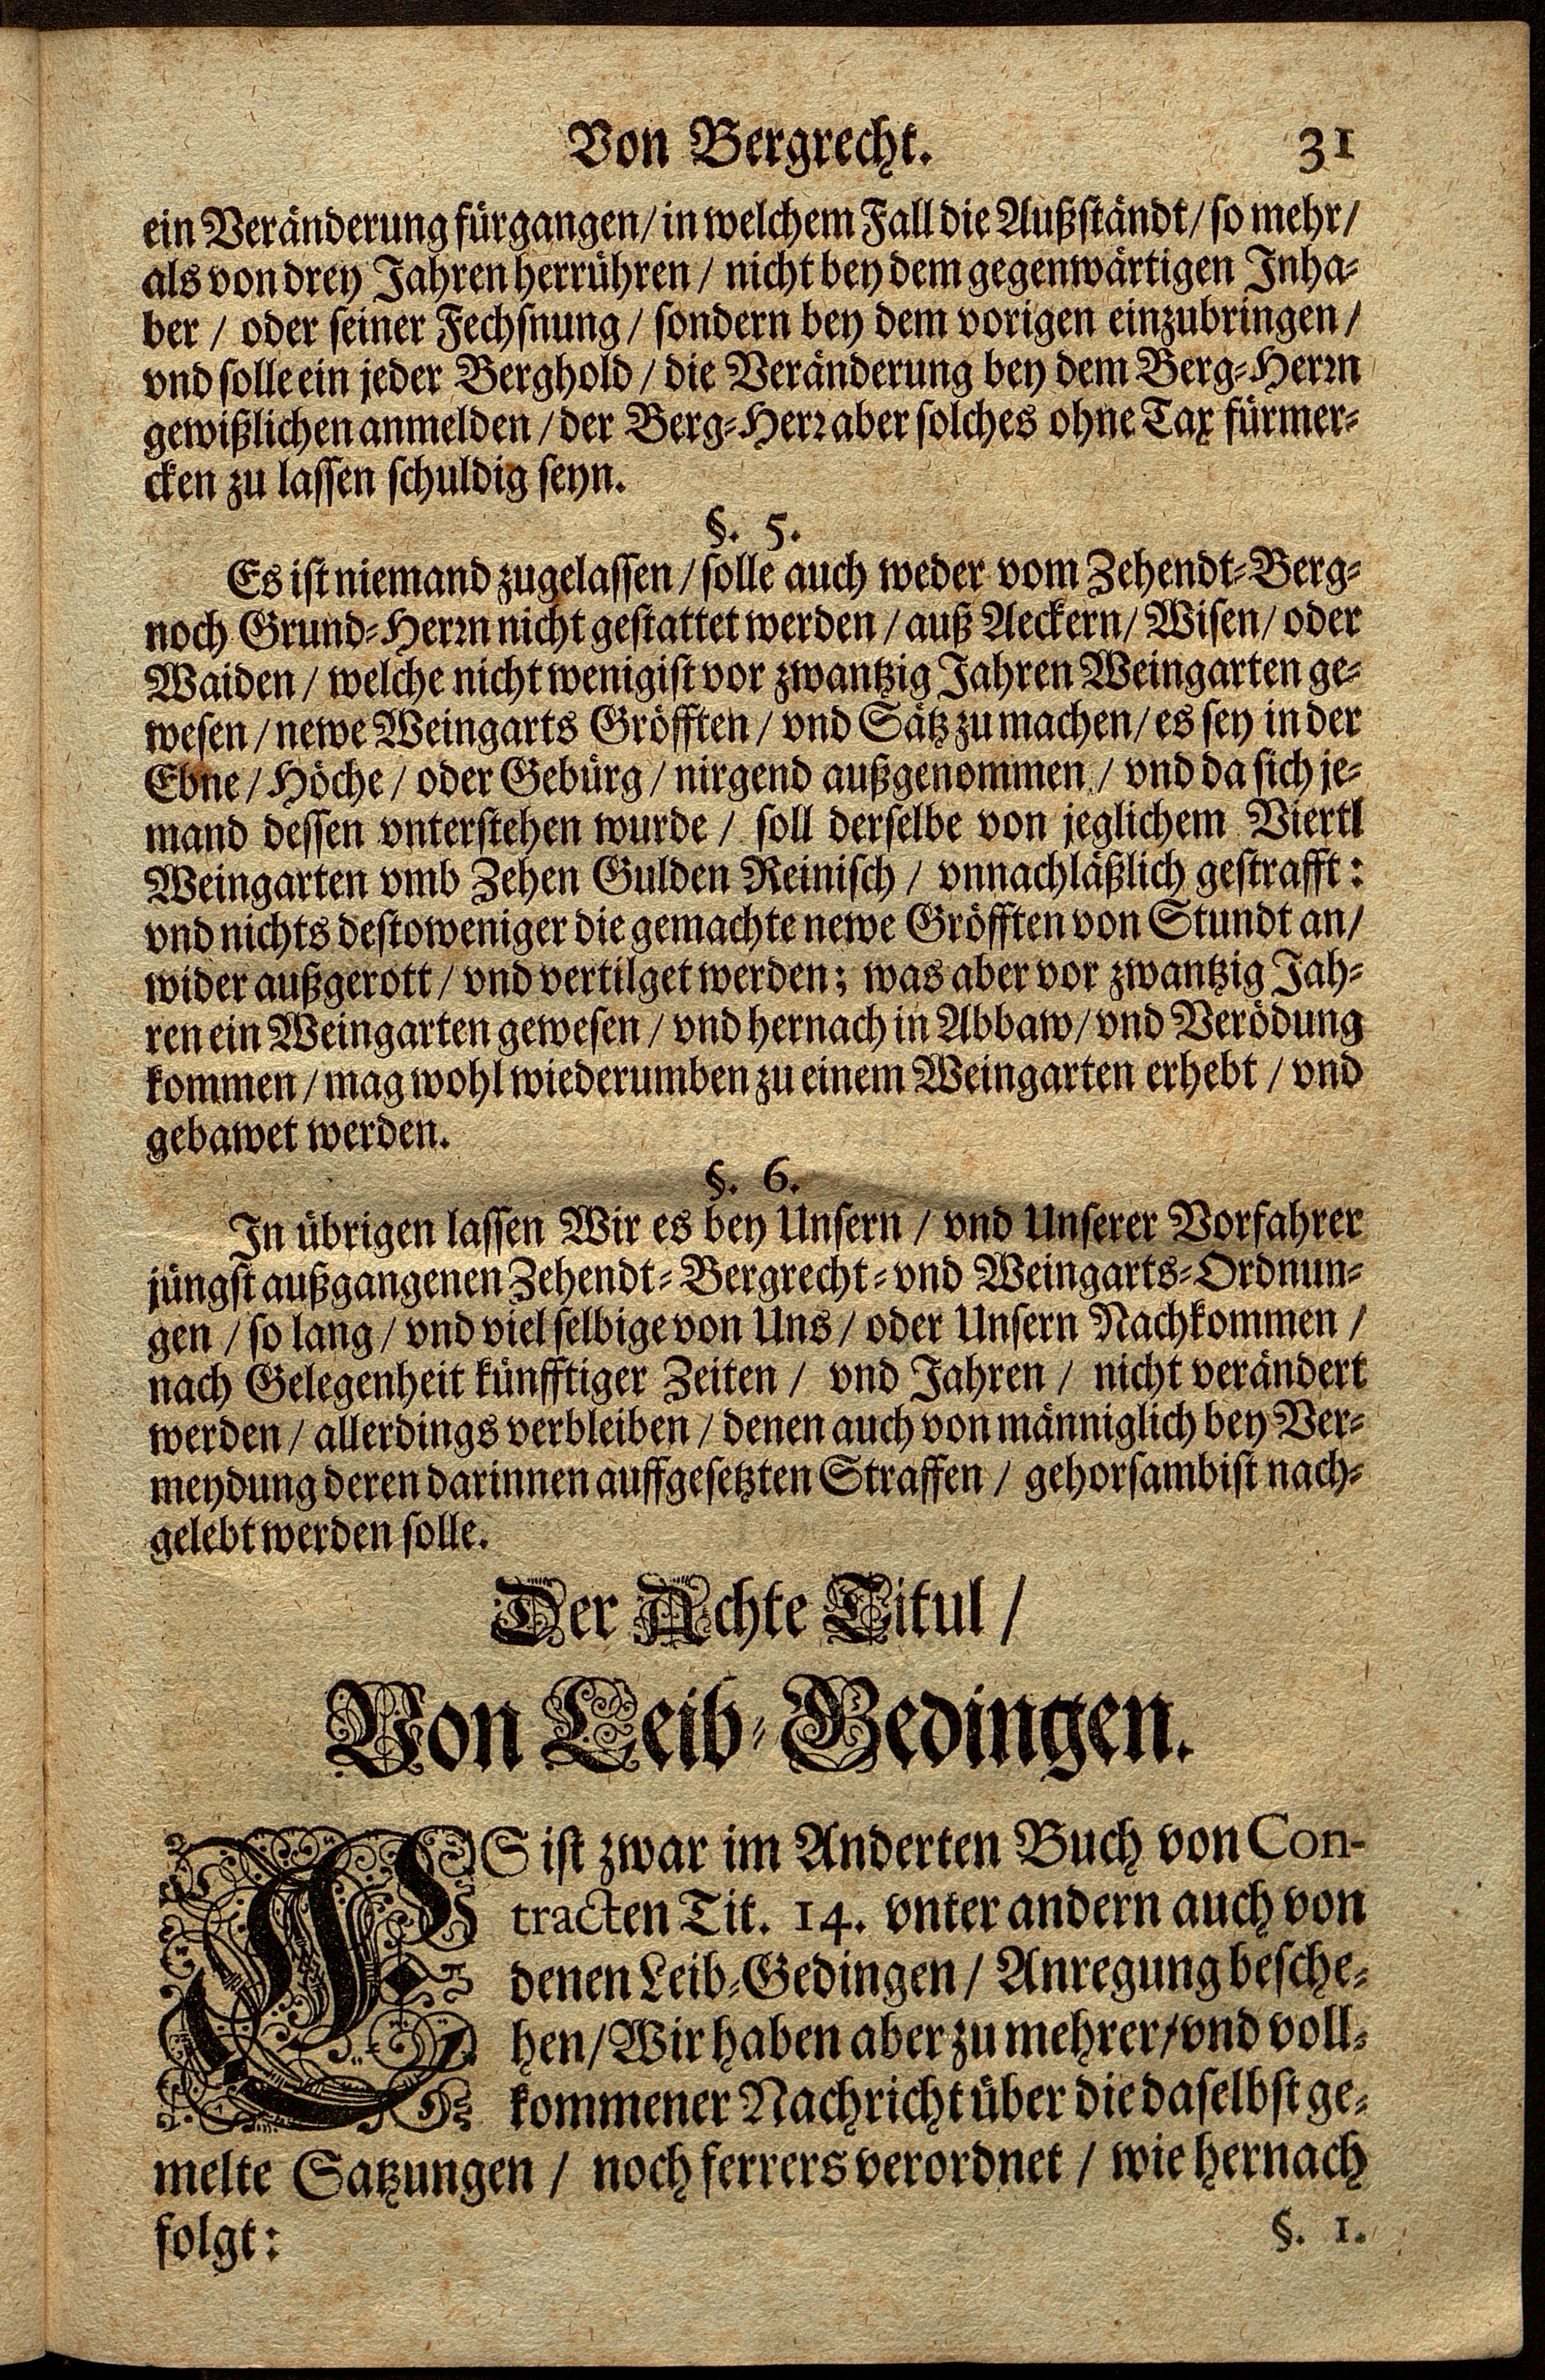 Von Bergrecht. 31
ein Veränderung fürgangen / in welchem Fall die Außständt / so mehr /
als von drey Jahren herrühren / nicht bey dem gegenwärtigen Inha-
ber / oder seiner Fechsnung / sondern bey dem vorigen einzubringen /
vnd solle ein jeder Berghold / die Veränderung bey dem Berg-Herrn
gewißlichen anmelden / der Berg-Herr aber solches ohne Tax fürmer-
cken zu lassen schuldig seyn.
§. 5.
Es ist niemand zugelassen / solle auch weder vom Zehendt-Berg-
noch Grund-Herrn nicht gestattet werden / auß Aeckern / Wisen / oder
Waiden / welche nicht wenigist vor zwantzig Jahren Weingarten ge-
wesen / newe Weingarts Gröfften / vnd Sätz zu machen / es sey in der
Ebne / Höche / oder Gebürg / nirgend außgenommen / vnd da sich je-
mand dessen vnterstehen wurde / soll derselbe von jeglichem Viertl
Weingarten vmb Zehen Gulden Reinisch / vnnachläßlich gestrafft :
vnd nichts destoweniger die gemachte newe Gröfften von Stundt an /
wider außgerott / vnd vertilget werden ; was aber vor zwantzig Jah-
ren ein Weingarten gewesen / vnd hernach in Abbaw / vnd Verödung
kommen / mag wohl wiederumben zu einem Weingarten erhebt / vnd
gebawet werden.
§. 6.
In übrigen lassen Wir es bey Unsern / vnd Unserer Vorfahrer
jüngst außgangenen Zehendt- Bergrecht- vnd Weingarts-Ordnun-
gen / so lang / vnd viel selbige von Uns / oder Unsern Nachkommen /
nach Gelegenheit künfftiger Zeiten / vnd Jahren / nicht verändert
werden / allerdings verbleiben / denen auch von männiglich bey Ver-
meydung deren darinnen auffgesetzten Straffen / gehorsambist nach-
gelebt werden solle.
Der Achte Titul /
Von Leib-Gedingen.
ES ist zwar im Anderten Buch von Con-
tracten Tit. 14. vnter andern auch von
denen Leib-Gedingen / Anregung besche-
hen / Wir haben aber zu mehrer / vnd voll-
kommener Nachricht über die daselbst ge-
melte Satzungen / noch ferrers verordnet / wie hernach
folgt : §. 1.